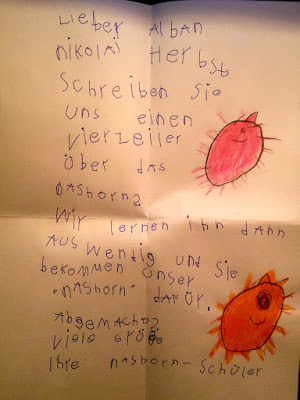 Lieber Alban
nikolai Herbst
Schreiben Sie
uns einen
Vierzeiler
über das
nashorn?
Wir lernen ihn dann
AUS Wendig und Sie
bekommen unser
"nashorn" dafür.
Abgemacht?
Viele Grüße
Ihre nashorn-Schüler